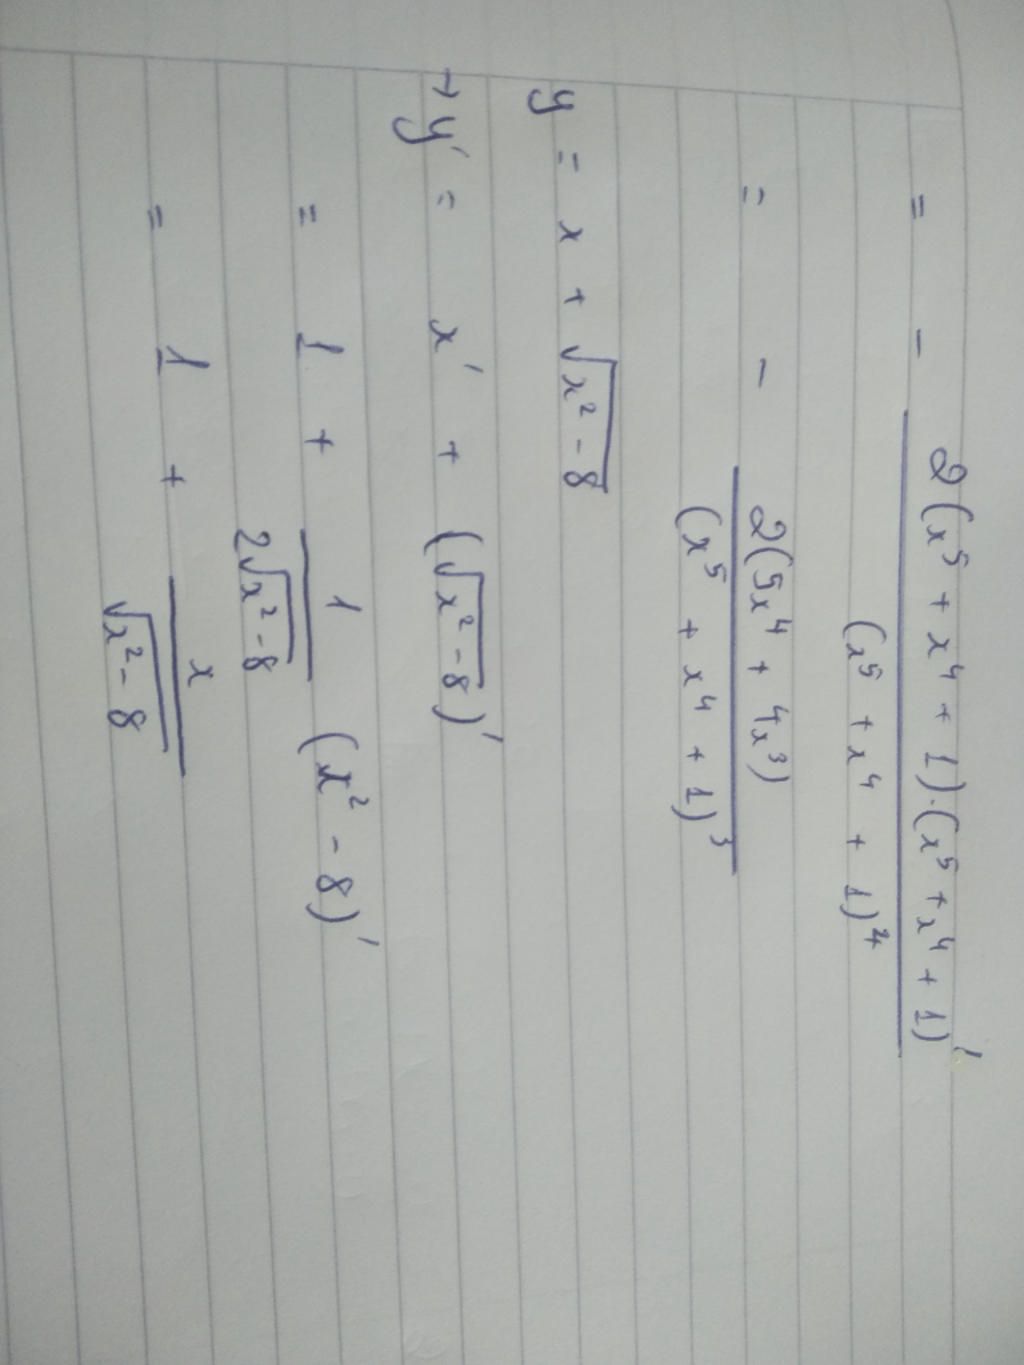 = - 2(x⁵ + x⁴ + 1)·(x⁵ + x⁴ + 1)'
(x⁵ + x⁴ + 1)⁴
= - 2(5x⁴ + 4x³)
(x⁵ + x⁴ + 1)³
y = x + √x² - 8
→ y' = x' + (√x² - 8)'
= 1 + 1 (x² - 8)'
2√x² - 8
= 1 + x
√x² - 8